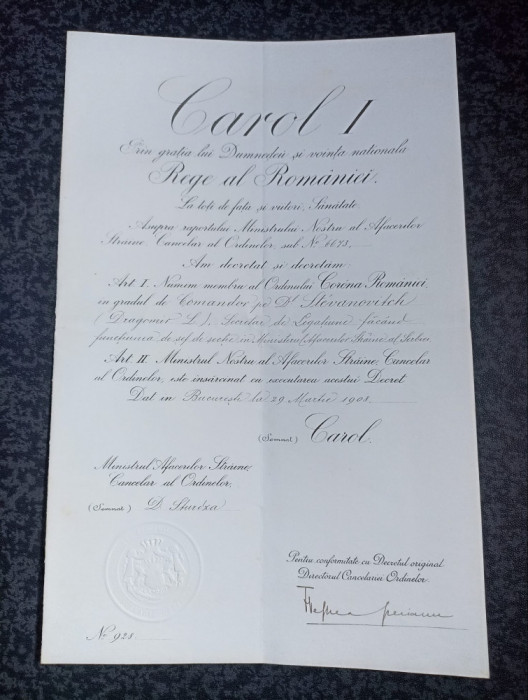 Carol I
Prin grația lui Dumnedeŭ și voința națională
Rege al României.
La toți de față și viitori, Sănătate.
Asupra reportului Ministrului Nostru al Afacerilor
Străine Cancelar al Ordinelor, sub No 1673,
Am decretat și decretăm
Art I. Numim membru al Ordinului Coróna României,
în gradul de Comandor pe Dl Stévanovitch
(Dragomir L), Secretar de Legațiune făcând
funcțiunĕ de șef de secție în Ministerul Afacerilor Străine al Serbiei
Art II. Ministrul Nostru al Afacerilor Străine, Cancelar
al Ordinelor, este însărcinat cu executarea acestui Decret.
Dat in București la 29 Martie 1908
(Semnat) Carol.
Ministrul Afacerilor Străine,
Cancelar al Ordinelor,
(Semnat) D. Sturdza
Pentru conformitate cu Decretul original
Directorul Cancelariei Ordinelor.
No 928